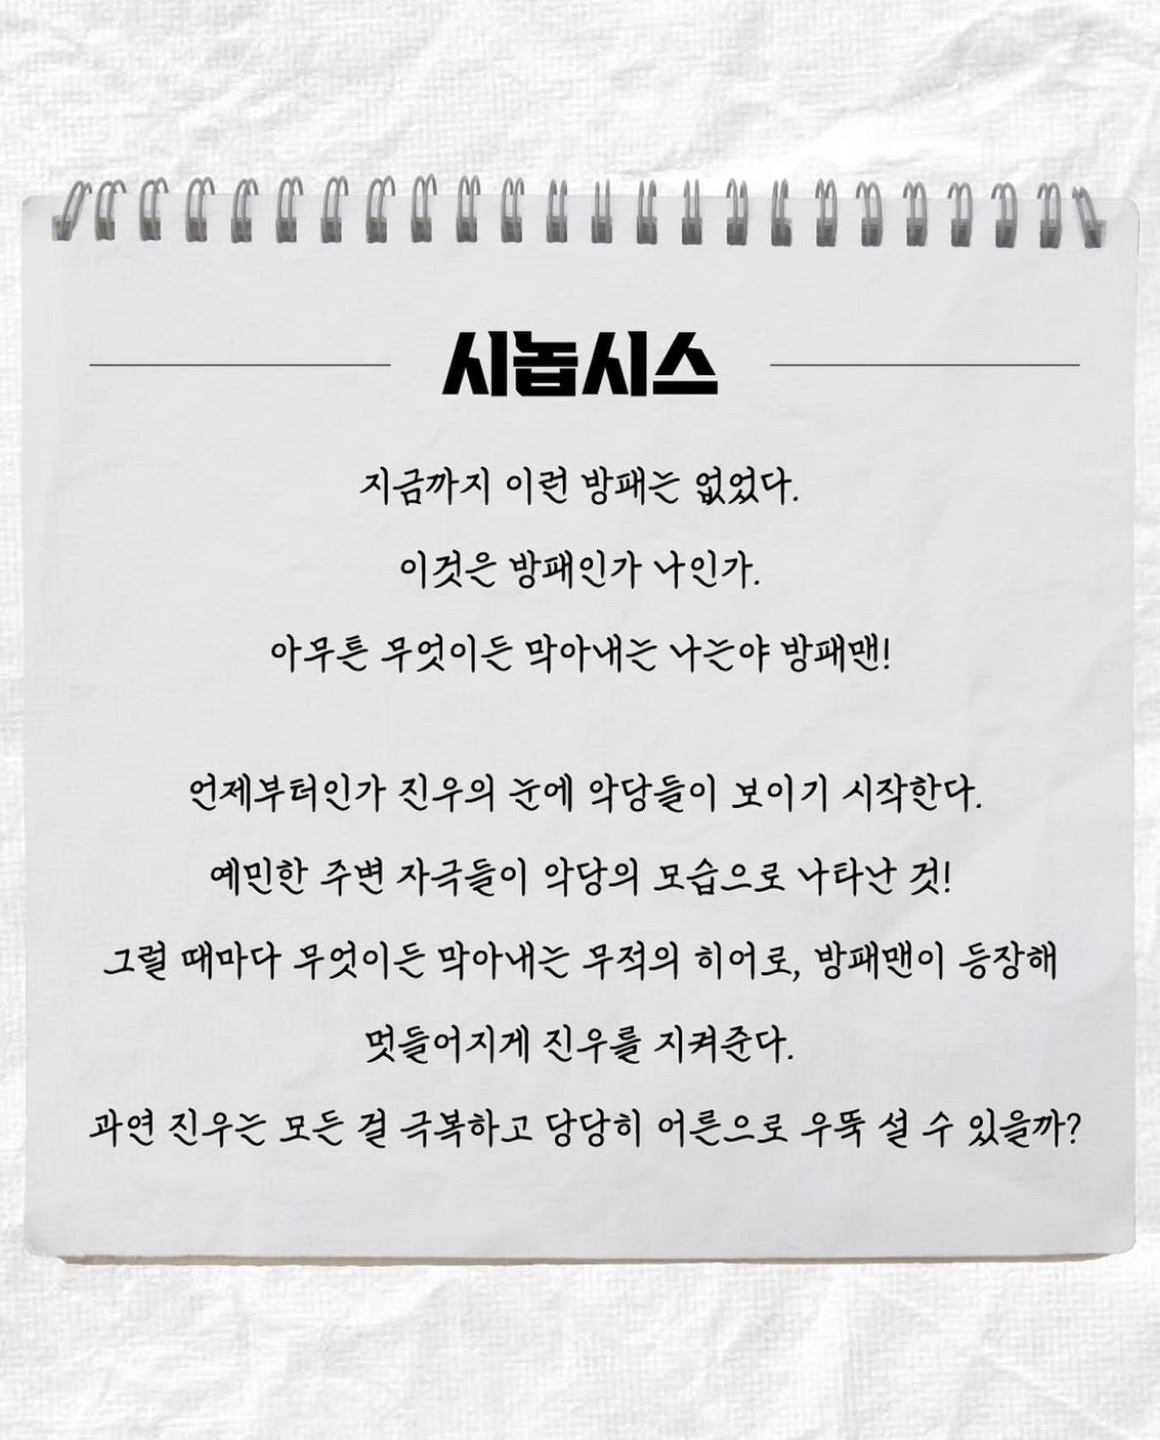 시놉시스
지금까지 이런 방패는 없었다.
이것은 방패인가 나인가.
아무튼 무엇이든 막아내는 나는야 방패맨!
언제부터인가 진우의 눈에 악당들이 보이기 시작한다.
예민한 주변 자극들이 악당의 모습으로 나타난 것!
그럴 때마다 무엇이든 막아내는 무적의 히어로, 방패맨이 등장해
멋들어지게 진우를 지켜준다.
과연 진우는 모든 걸 극복하고 당당히 어른으로 우뚝 설 수 있을까?